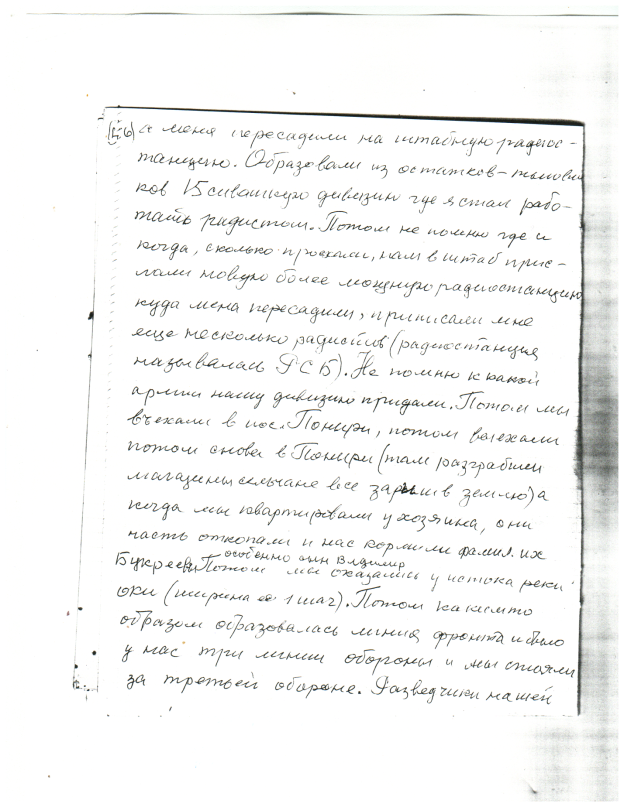 а меня пересадили на штабную радиос-
танцию. Образовали из остатков-тылови
ков 15 сивашкую дивизию где я стал рабо-
тать радистом. Потом не помню где и
когда, сколько проехали, нам в штаб прис-
лали новую более мощную радиостанцию
куда меня пересадили, приписали мне
еще несколько радистов (радиостанция
называлась РСБ). Не помню к какой
армии нашу дивизию придали. Потом мы
въехали в пос. Поныри, потом выехали
потом снова в Поныри (там разграбили
магазины сельчане все зарыли в землю) а
когда мы квартировали у хозяина, они
часть откопали и нас кормили фамил. их
особенно сын Владимир
Букреевы Потом мы оказались у истока реки
оки (ширина ее 1 шаг). Потом каким то
образом образовалась линия фронта и было
у нас три линии обороны и мы стояли
за третьей обороне. Разведчики нашей